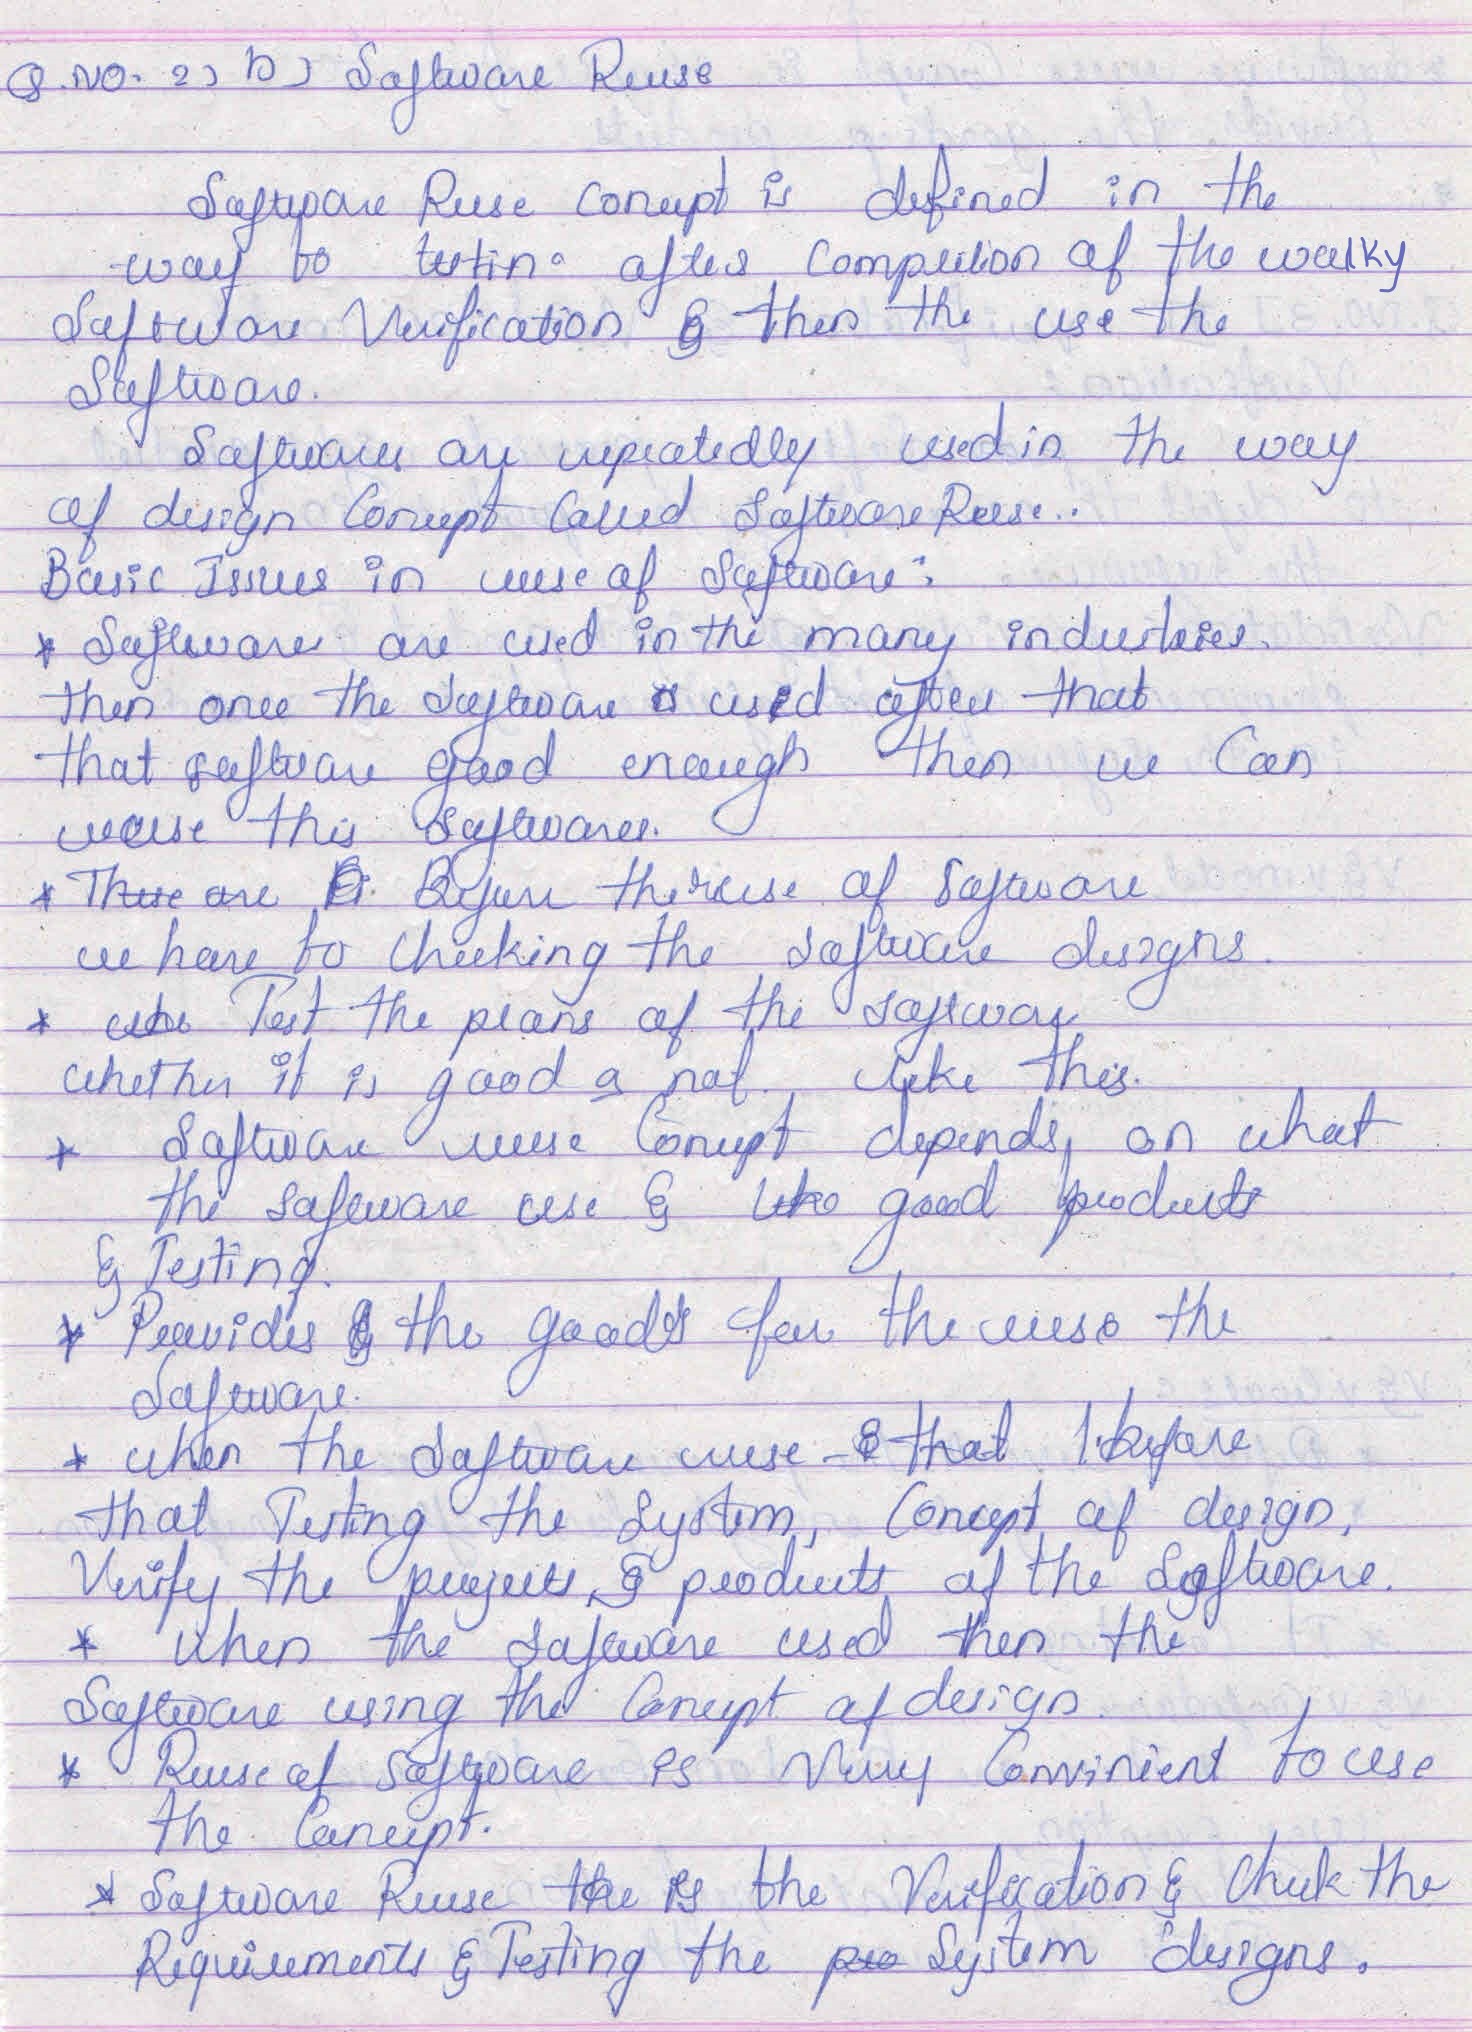 Q.NO. 2) b) Software Reuse
Software Reuse Concept is defined in the
way to testing after Completion of the walky
Software Verification & then the use the
Software.
Softwares are repeatedly used in the way
of design Concept Called Software Reuse..
Basic Issues in reuse of Software:
* Softwares are used in the many industries.
then once the Software is used after that
that software good enough then we Can
reuse this Softwares.
* There are Before the reuse of Software
we have to Checking the Software designs.
* Test the plans of the Software
whether it is good a not. like this.
* Software reuse Concept depends on what
the Software use & good products
& Testing.
* Provides & the goods for the reuse the
Software.
* when the Software reuse that before
that Testing the System, Concept of design,
Verify the projects, & products of the Software.
* when the Software used then the
Software using the Concept of design.
* Reuse of Software is Very Convinient to use
the Concept.
* Software Reuse the is the Verification & Check the
Requirements & Testing the System designs.